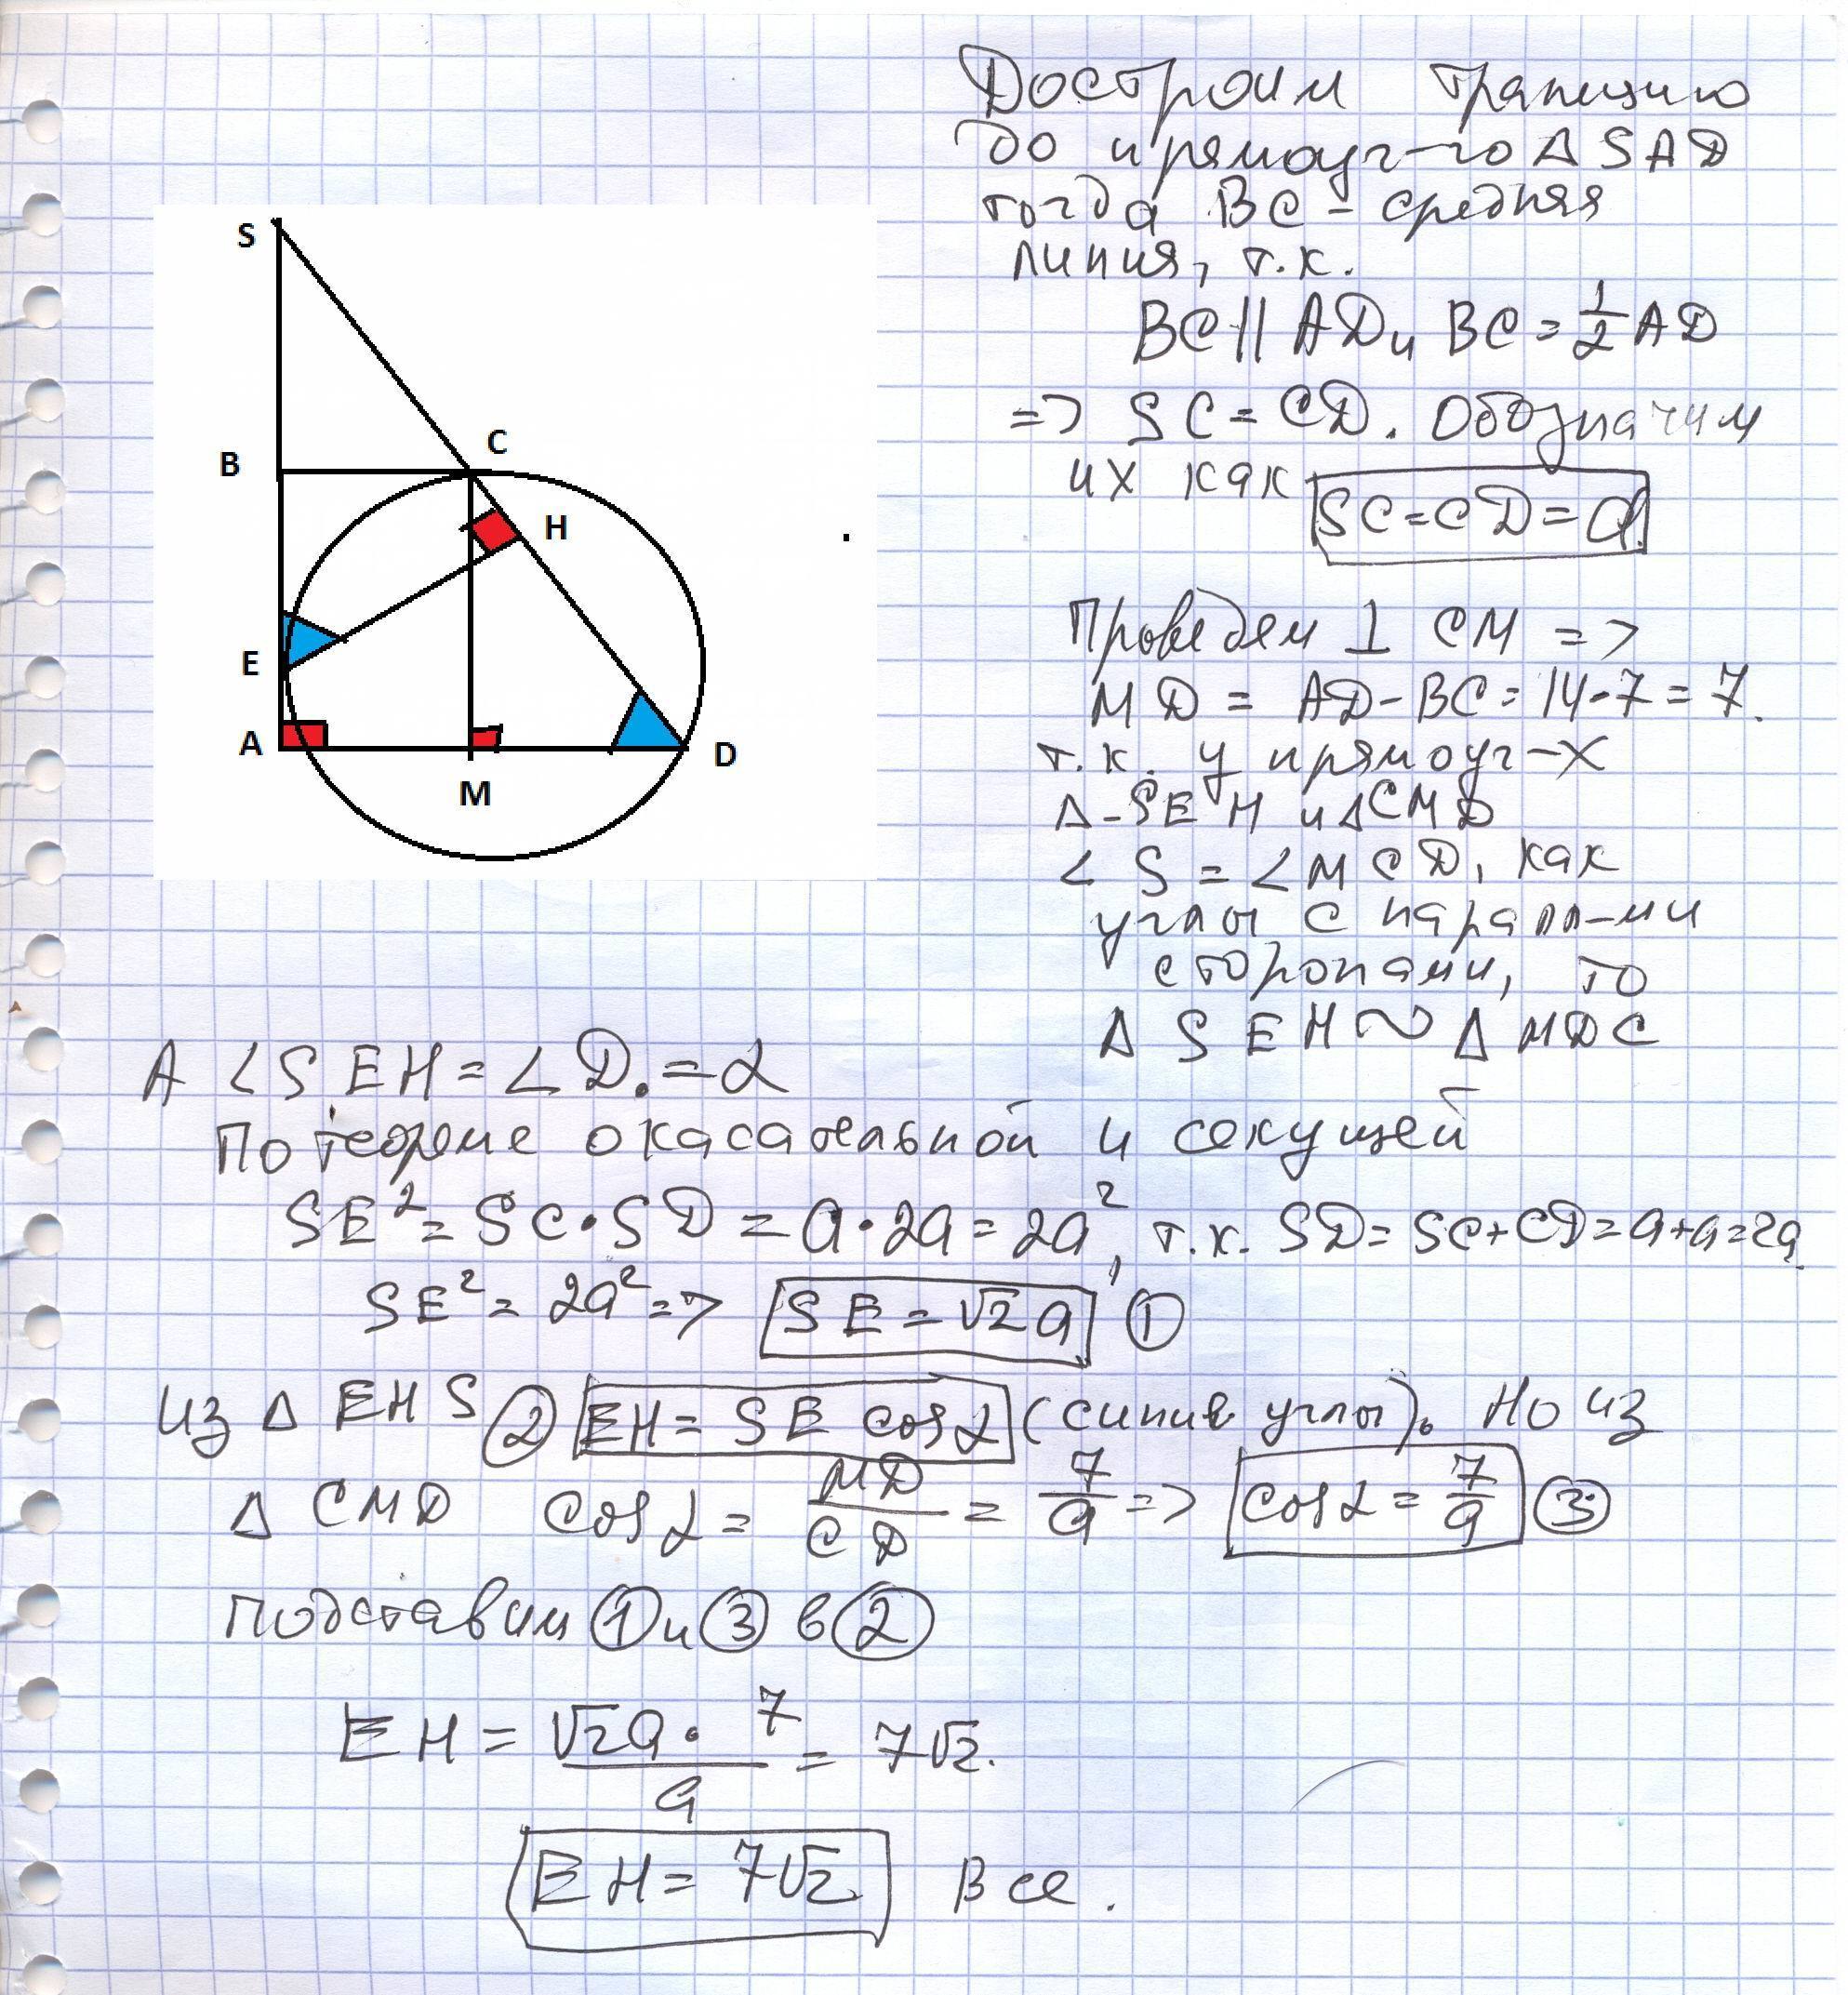 Достроим трапецию
до прямоуг-го Δ SAD
тогда BC - средняя
линия, т.к.
BC || AD и BC = 1/2 AD
=> SC = CD. Обозначим
их как SC = CD = a.
S
B
C
H
E
A
M
D
Проведем ⊥ CM =>
MD = AD - BC = 14 - 7 = 7.
т.к. у прямоуг-х
Δ-SEH и ΔCMD
∠ S = ∠ MCD, как
углы с паралл-ми
сторонами, то
Δ SEH ~ Δ MDC
А ∠SEH = ∠D. = α
По теореме о касательной и секущей
SE² = SC • SD = a • 2a = 2a², т.к. SD = SC + CD = a + a = 2a.
SE² = 2a² => SE = √2 a ①
Из Δ EHS ② EH = SE cos α (синие углы). Но из
Δ CMD cos α = MD/CD = 7/a => cos α = 7/a ③
Подставим ① и ③ в ②
EH = √2 a • 7 / a = 7√2.
EH = 7√2 Все.